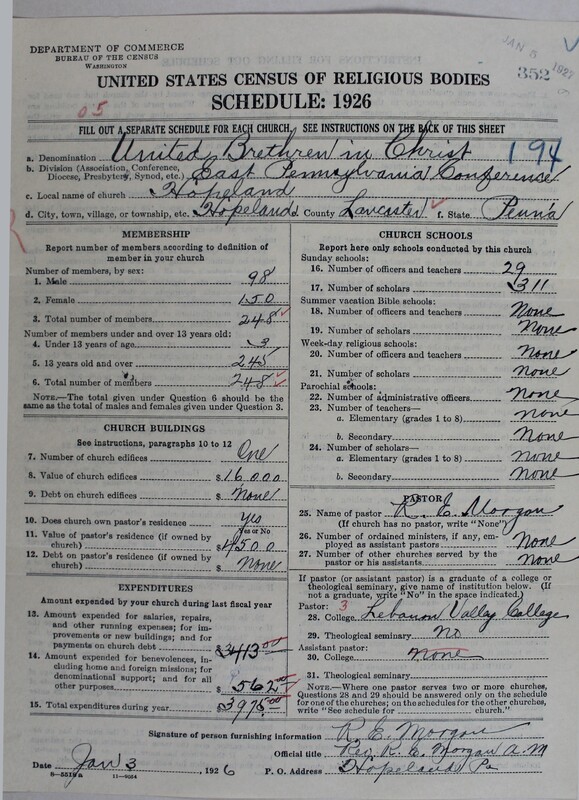 DEPARTMENT OF COMMERCE
BUREAU OF THE CENSUS
WASHINGTON
JAN 5 1927
352
UNITED STATES CENSUS OF RELIGIOUS BODIES
SCHEDULE: 1926
05
FILL OUT A SEPARATE SCHEDULE FOR EACH CHURCH. SEE INSTRUCTIONS ON THE BACK OF THIS SHEET
194
a. Denomination United Brethren in Christ
b. Division (Association, Conference, Diocese, Presbytery, Synod, etc.) East Pennsylvania Conference
c. Local name of church Hopeland
d. City, town, village, or township, etc. Hopeland County Lancaster f. State Penn'a
MEMBERSHIP
Report number of members according to definition of
member in your church
Number of members, by sex:
1. Male 98
2. Female 150
3. Total number of members 248
Number of members under and over 13 years old:
4. Under 13 years of age 3
5. 13 years old and over 245
6. Total number of members 248
NOTE.—The total given under Question 6 should be the
same as the total of males and females given under Question 3.
CHURCH BUILDINGS
See instructions, paragraphs 10 to 12
7. Number of church edifices One
8. Value of church edifices $16,000
9. Debt on church edifices $ None
10. Does church own pastor's residence yes
Yes or No
11. Value of pastor's residence (if owned by
church) $4500
12. Debt on pastor's residence (if owned by
church) $ None
EXPENDITURES
Amount expended by your church during last fiscal year
13. Amount expended for salaries, repairs,
and other running expenses; for im-
provements or new buildings; and for
payments on church debt $3413.00
14. Amount expended for benevolences, in-
cluding home and foreign missions; for
denominational support; and for all
other purposes $562.00
15. Total expenditures during year $3975.00
CHURCH SCHOOLS
Report here only schools conducted by this church
Sunday schools:
16. Number of officers and teachers 29
17. Number of scholars 311
Summer vacation Bible schools:
18. Number of officers and teachers None
19. Number of scholars None
Week-day religious schools:
20. Number of officers and teachers None
21. Number of scholars None
Parochial schools:
22. Number of administrative officers None
23. Number of teachers—
a. Elementary (grades 1 to 8) None
b. Secondary None
24. Number of scholars—
a. Elementary (grades 1 to 8) None
b. Secondary None
PASTOR
25. Name of pastor R. E. Morgan
(If church has no pastor, write "None")
26. Number of ordained ministers, if any, em-
ployed as assistant pastors None
27. Number of other churches served by the
pastor or his assistants None
If pastor (or assistant pastor) is a graduate of a college or
theological seminary, give name of institution below. (If
not a graduate, write "No" in the space indicated.)
Pastor: 3
28. College Lebanon Valley College
29. Theological seminary No
Assistant pastor:
30. College None
31. Theological seminary
NOTE.—Where one pastor serves two or more churches,
Questions 28 and 29 should be answered only on the schedule
for one of the churches; on the schedules for the other churches,
write "See schedule for church."
Signature of person furnishing information R. E. Morgan
Official title Rev. R. E. Morgan A.M
Date Jan 3, 1926 P. O. Address Hopeland Pa
8—5519a 11—9054